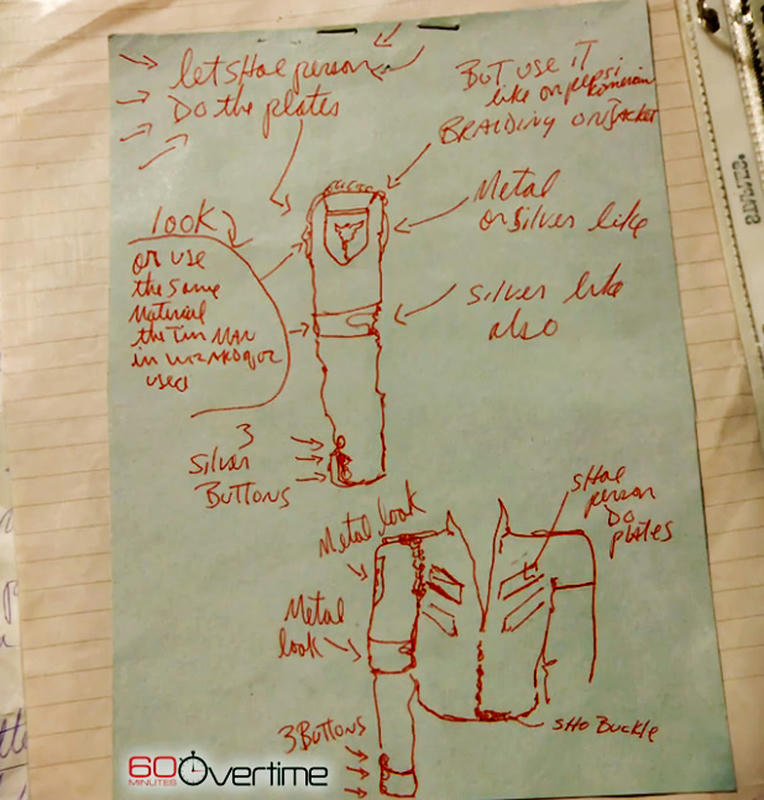 let SHoe person
Do the plates
BUT USE IT
like on pepsi
BRAIDING ON JACKET
Metal
or silver like
LOOK
or use
the same
Material
the Tin MAN
in wizard of oz
used
Silver like
also
3
Silver
BUTTONS
SHoe
person
DO
plates
Metal look
Metal
look
3 BUTTONS
SHO Buckle
60 Overtime
MINUTES